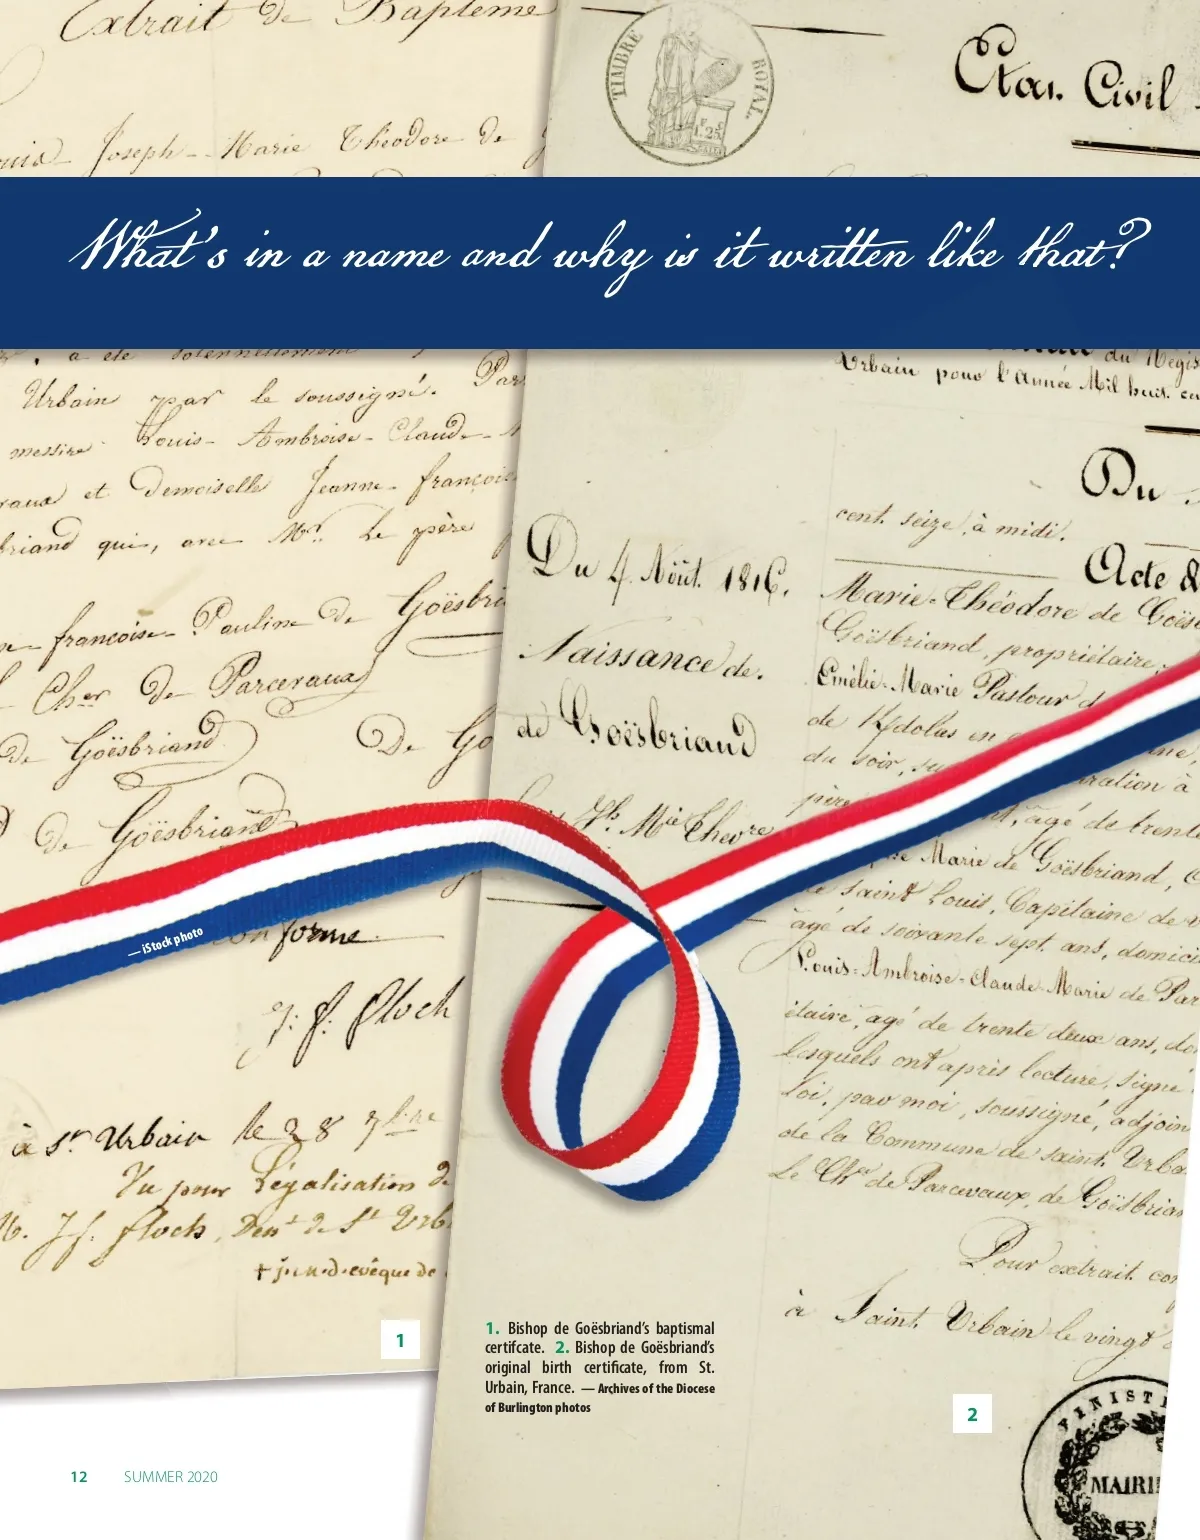 Extrait de Baptême
Joseph-Marie Théodore de
TIMBRE ROYAL
1.25
Etat Civil
What's in a name and why is it written like that?
a été solennellement
Urbain par le soussigné.
messire Louis-Ambroise-Claude-
et Demoiselle Jeanne-françoise
briand qui, avec Mr. Le père
françoise-Pauline De Goësbri
Cher De Parcevaux
De Goësbriand De Go
De Goësbriand
— iStock photo
forme
J. f. floch
à St Urbain le 28 7bre
Vu pour Légalisation de
J. f. floch, Des.t de St Urb
évêque de
1
du Regis
Urbain pour l'Année Mil huit ce
Du
cent seize, à midi.
Du 4 Août 1816.
Acte de
Marie-Théodore de Goës
Goësbriand, propriétaire,
Naissance de
Emélie-Marie Pastour d
de Goësbriand
de Kjdolas en
du soir, su
ration à
père
Mie Theore
âgé de trente
Marie de Goësbriand, C
de Saint Louis, Capitaine de v
âgé de soixante sept ans, domici
Louis-Ambroise-Claude-Marie de Par
étaire, agé de trente deux ans, do
lesquels ont après lecture, signé
loi, par moi, soussigné, adjoin
de la Commune de saint Urba
Le Cher de Parcevaux, de Goësbria
Pour extrait con
à Saint Urbain le vingt
1. Bishop de Goësbriand's baptismal
certifcate. 2. Bishop de Goësbriand's
original birth certificate, from St.
Urbain, France. — Archives of the Diocese
of Burlington photos
2
FINIST
MAIRI
12 SUMMER 2020